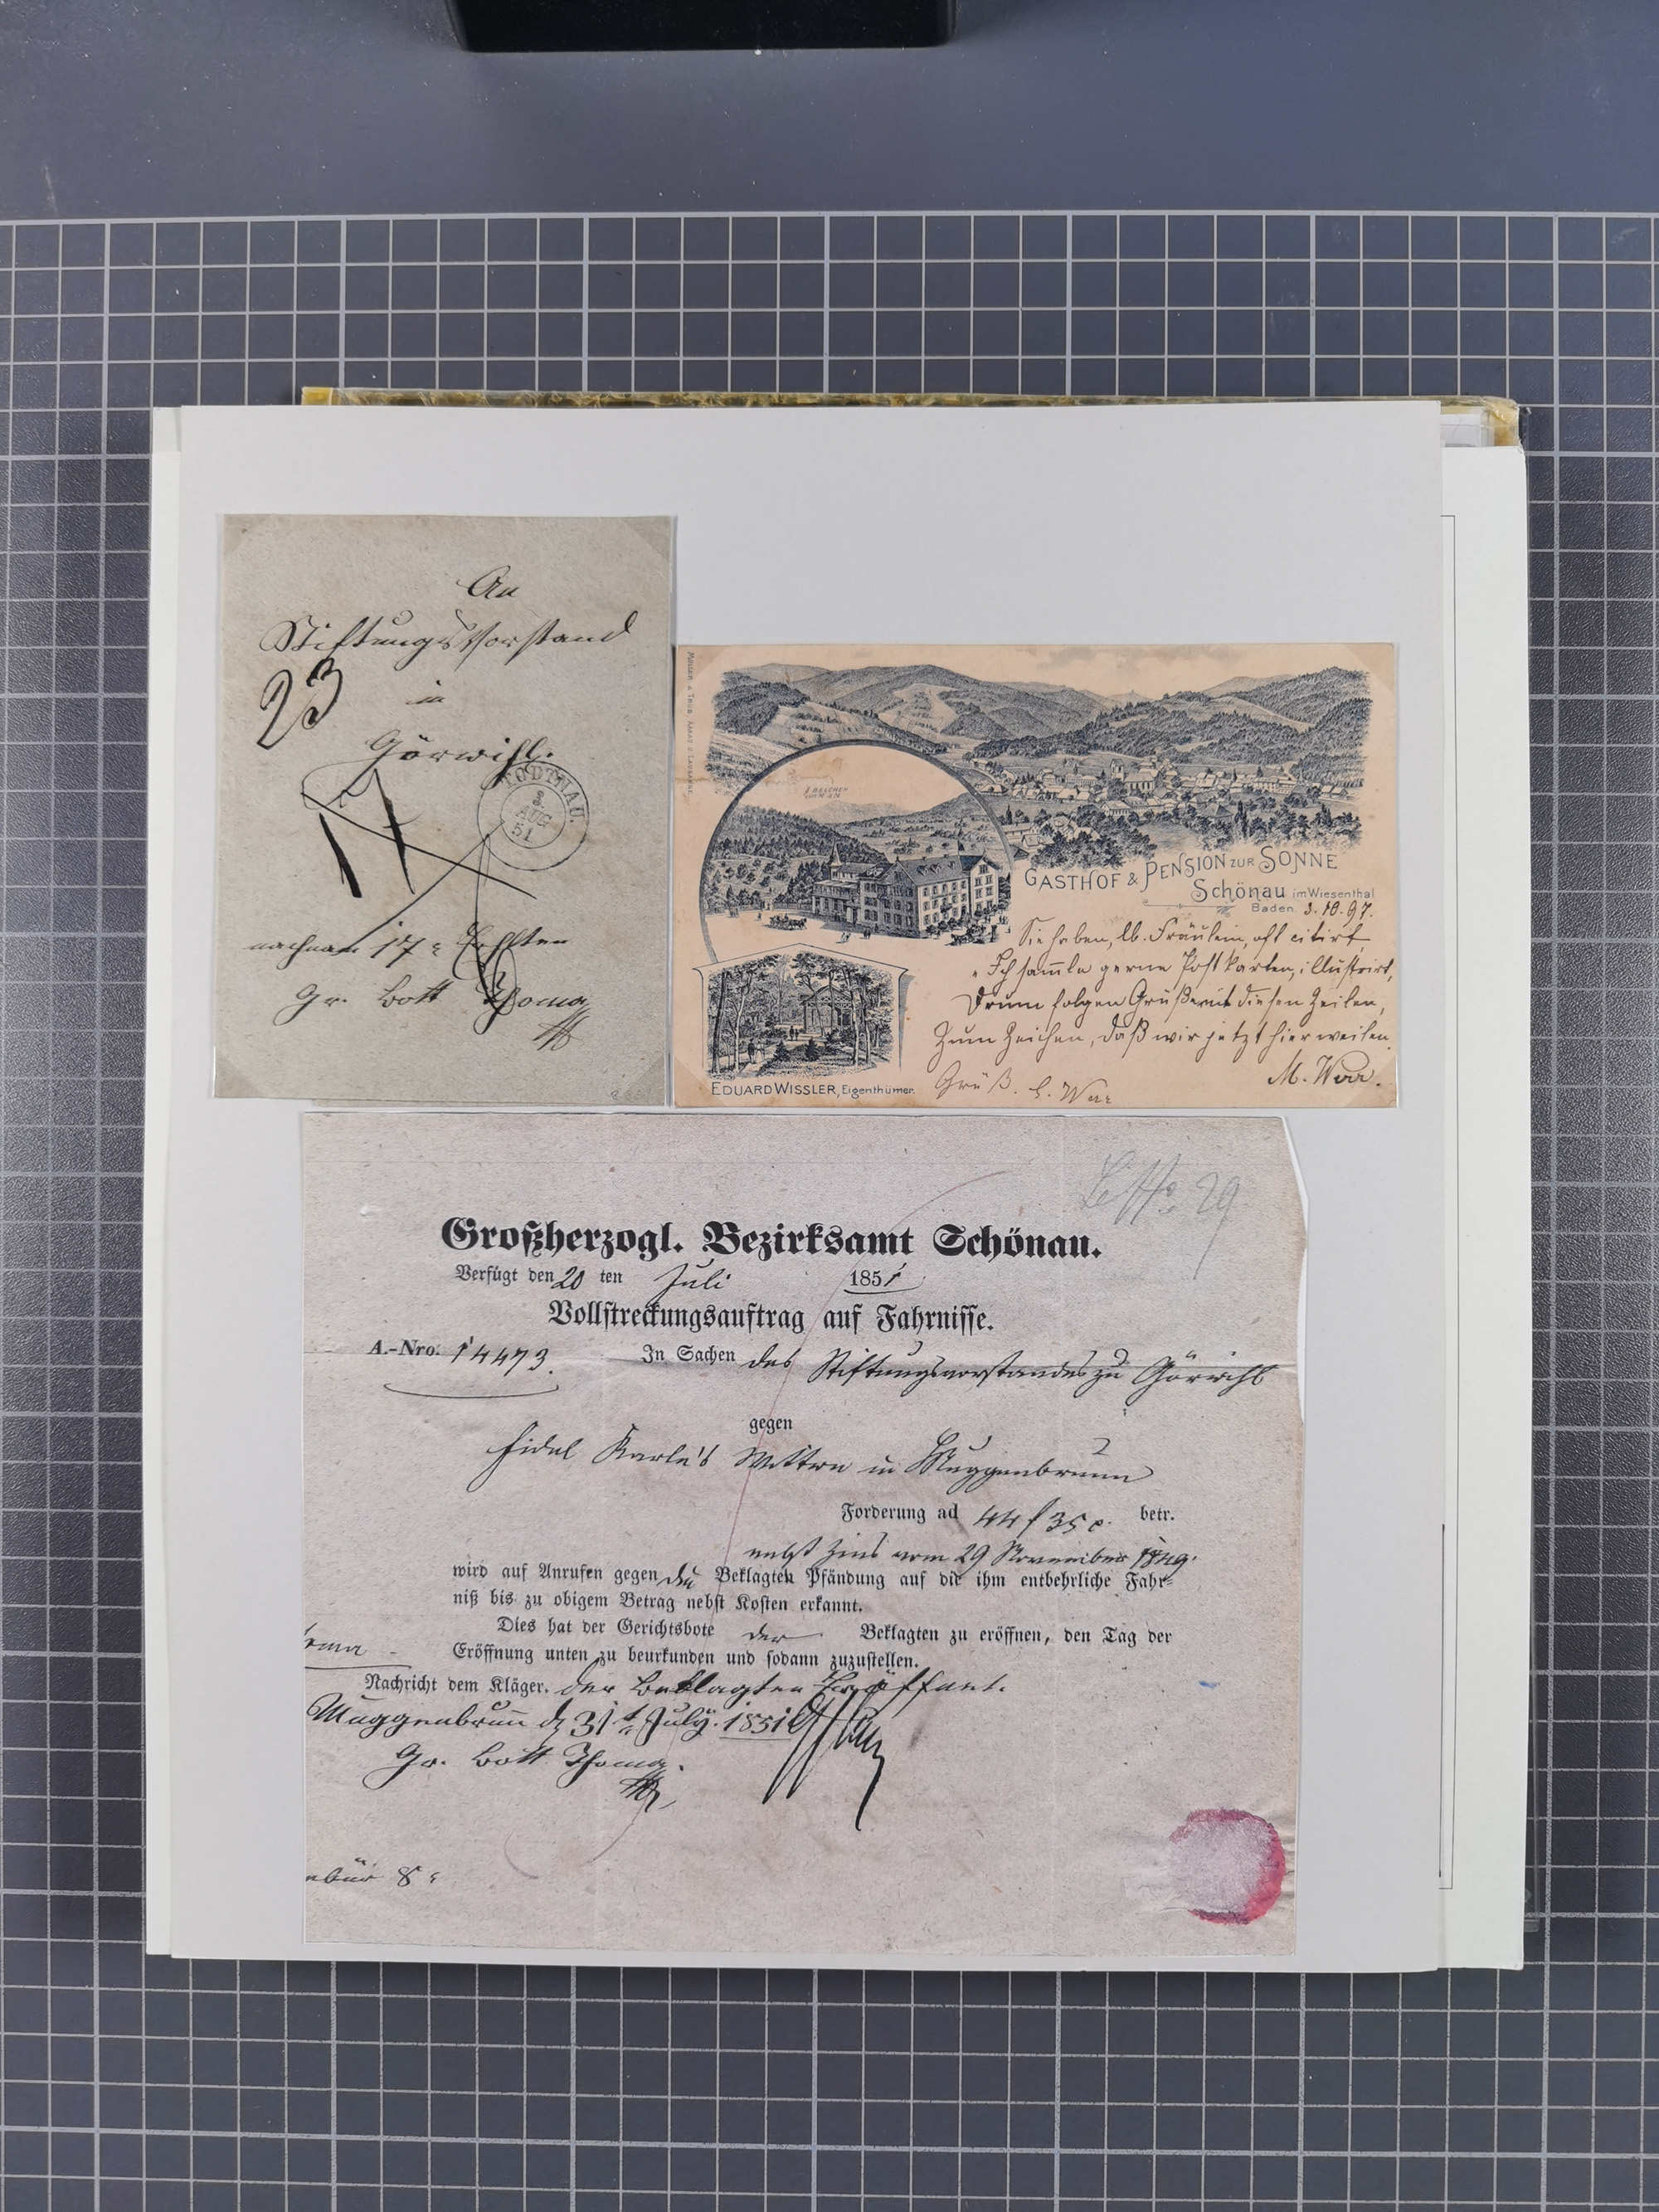 An
Stiftungsvorstand
23
in
Görwihl.
TODTNAU
3
AUG
51
17
nachnam 17 x
Gr. Bott Thoma
MÜLLER & TRÜB, AARAU & LAUSANNE.
BELCHEN
GASTHOF & PENSION ZUR SONNE
Schönau im Wiesenthal
Baden 3.10.97.
Sie haben, lb. Fräulein, oft citirt,
„Ich sammle gerne Postkarten, illustrirt,
Drum folgen Grüße mit diesen Zeilen,
Zum Zeichen, daß wir jetzt hier weilen.
M. Werr.
Gruß.
EDUARD WISSLER, Eigenthümer.
29
Großherzogl. Bezirksamt Schönau.
Verfügt den 20 ten Juli 1851
Vollstreckungsauftrag auf Fahrnisse.
A.-Nro. 14473. In Sachen des Stiftungsvorstandes zu Görwihl
gegen
Fidel Karle's Wittwe in Muggenbrunn
Forderung ad 44 f 35 x. betr.
nebst Zins vom 29 November 1849.
wird auf Anrufen gegen die Beklagten Pfändung auf die ihm entbehrliche Fahr-
niß bis zu obigem Betrag nebst Kosten erkannt.
Dies hat der Gerichtsbote der Beklagten zu eröffnen, den Tag der
Eröffnung unten zu beurkunden und sodann zuzustellen.
Nachricht dem Kläger. der Beklagten Eröffnet.
Muggenbrunn d 31t July. 1851
Gr. Bott Thoma.